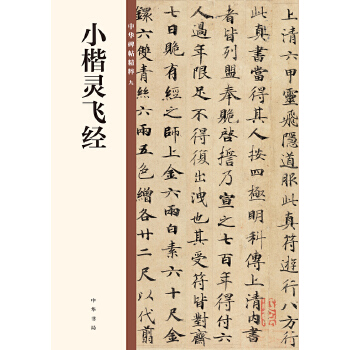 小楷灵飞经
中华书局
中华碑帖精粹
上清六甲靈飛隱道服此真符遊行八方行
此真書當得其人按四極明科傳上清內書
者皆列盟奉貺啓誓乃宣之七百年得付六
人過年限足不得復出洩也其受符皆對齋
七日貺有經之師上金六兩白素六十尺金
鐶六雙青絲六兩五色繒各廿二尺以代翦